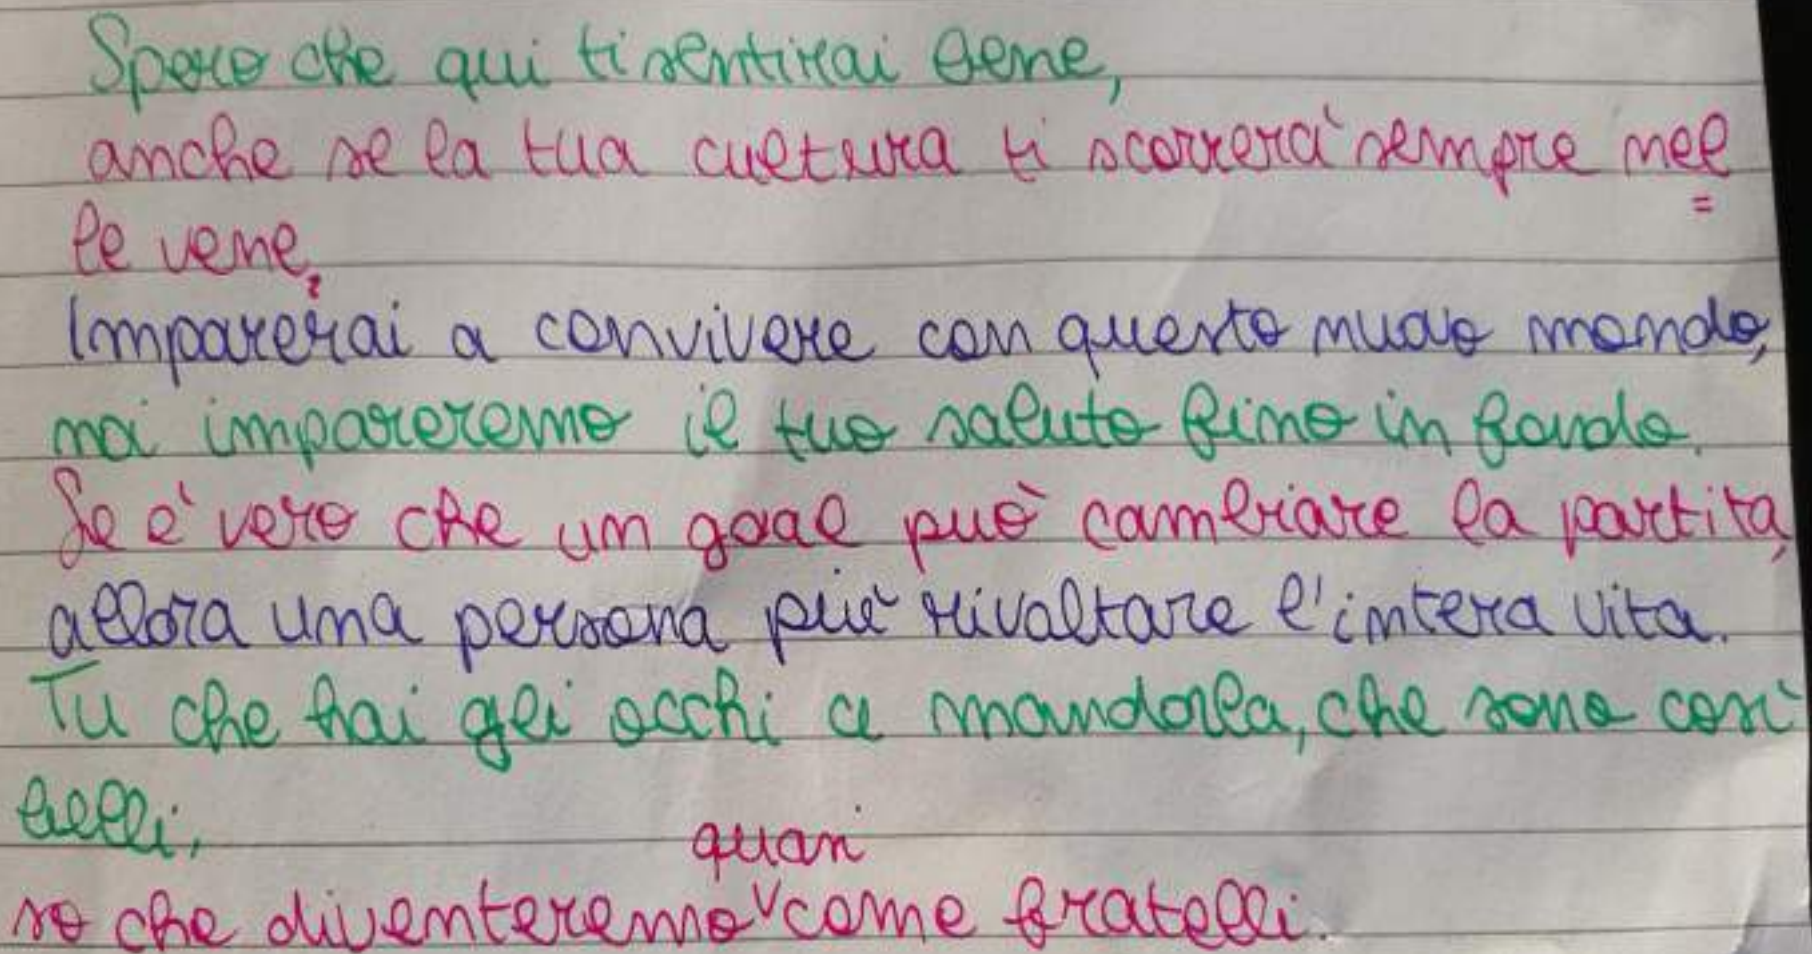 Spero che qui ti sentirai bene,
anche se la tua cultura ti scorrerà sempre nel=
le vene.
Imparerai a convivere con questo nuovo mondo,
noi impareremo il tuo saluto fino in fondo.
Se è vero che un goal può cambiare la partita,
allora una persona può rivoltare l'intera vita.
Tu che hai gli occhi a mandorla, che sono così
belli,
quasi
so che diventeremo v come fratelli.